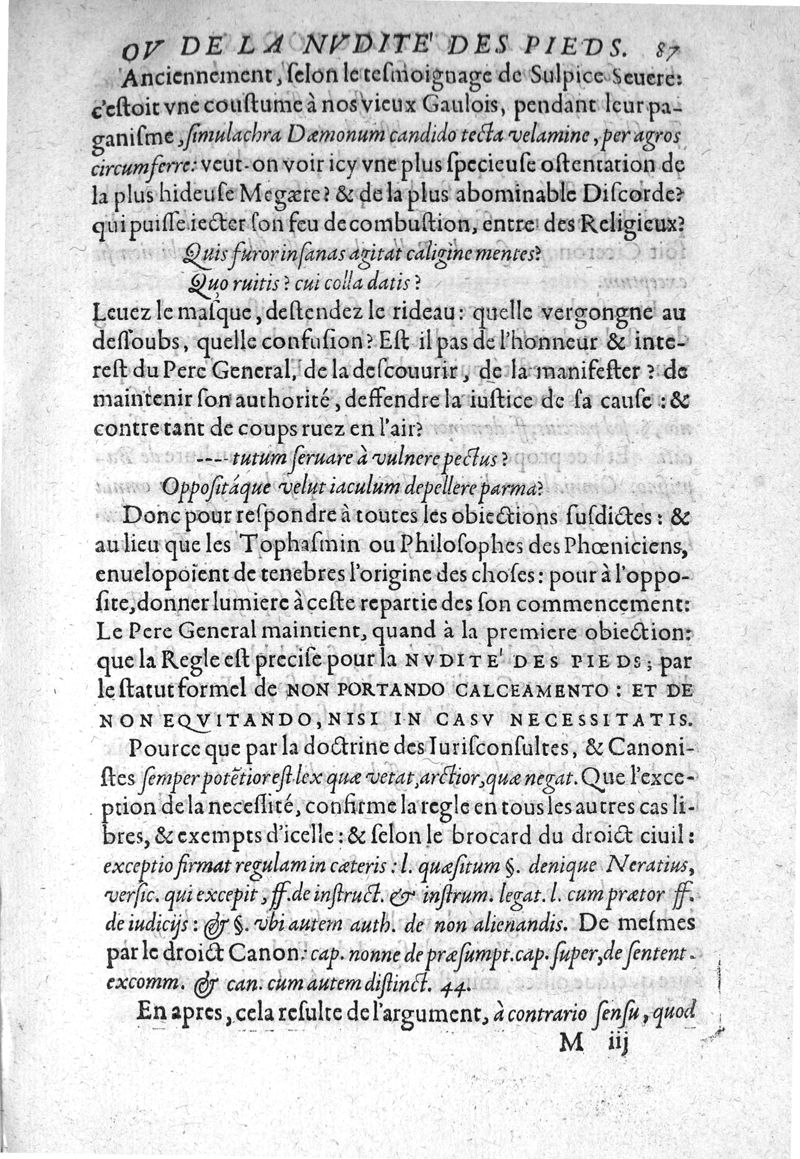 OV DE LA NVDITE' DES PIEDS. 87
Anciennement, ſelon le teſmoignage de Sulpice Seuere:
c'eſtoit vne couſtume à nos vieux Gaulois, pendant leur pa-
ganiſme, ſimulachra Dæmonum candido tecta velamine, per agros
circumferre: veut-on voir icy vne plus ſpecieuſe oſtentation de
la plus hideuſe Megære? & de la plus abominable Diſcorde?
qui puiſſe iecter ſon feu de combuſtion, entre des Religieux?
Quis furor inſanas agitat caligine mentes?
Quo ruitis? cui colla datis?
Leuez le maſque, deſtendez le rideau: quelle vergongne au
deſſoubs, quelle confuſion? Eſt il pas de l'honneur & inte-
reſt du Pere General, de la deſcouurir, de la manifeſter? de
maintenir ſon authorité, deffendre la iuſtice de ſa cauſe: &
contre tant de coups ruez en l'air?
---- tutum ſeruare à vulnere pectus?
Oppoſitáque velut iaculum depellere parma?
Donc pour reſpondre à toutes les obiections ſuſdictes: &
au lieu que les Tophaſmin ou Philoſophes des Phœniciens,
enuelopoient de tenebres l'origine des choſes: pour à l'oppo-
ſite, donner lumiere à ceſte repartie des ſon commencement:
Le Pere General maintient, quand à la premiere obiection:
que la Regle eſt preciſe pour la NVDITE' DES PIEDS; par
le ſtatut formel de NON PORTANDO CALCEAMENTO: ET DE
NON EQVITANDO, NISI IN CASV NECESSITATIS.
Pource que par la doctrine des Iuriſconſultes, & Canoni-
ſtes ſemper potẽtior eſt lex quæ vetat, arctior, quæ negat. Que l'exce-
ption de la neceſſité, confirme la regle en tous les autres cas li-
bres, & exempts d'icelle: & ſelon le brocard du droict ciuil:
exceptio firmat regulam in cæteris: l. quæſitum §. denique Neratius,
verſic. qui excepit, ff. de inſtruct. & inſtrum. legat. l. cum prætor ff.
de iudicijs: & §. vbi autem auth. de non alienandis. De meſmes
par le droict Canon: cap. nonne de præſumpt. cap. ſuper, de ſentent.
excomm. & can. cum autem diſtinct. 44.
En apres, cela reſulte de l'argument, à contrario ſenſu, quod
M iij